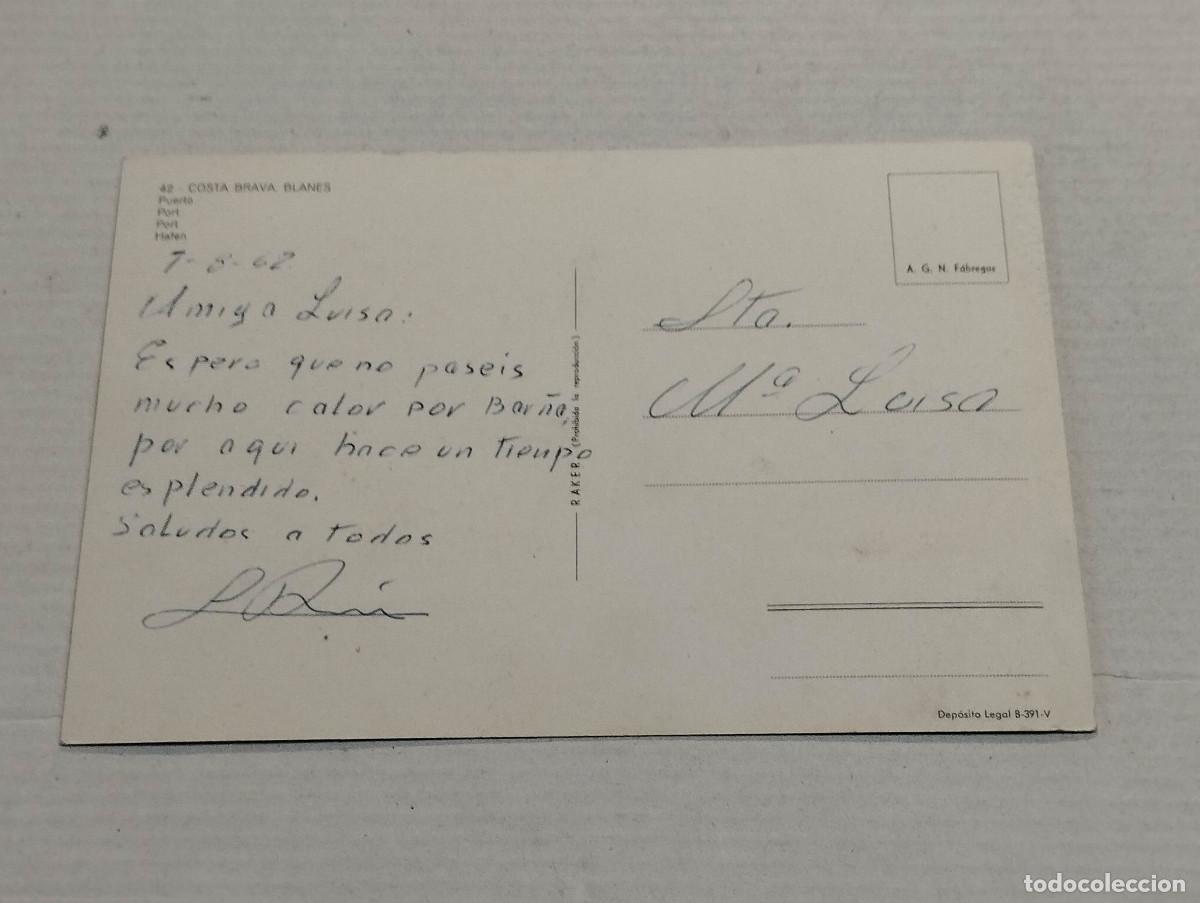 42 - COSTA BRAVA. BLANES
Puerto
Port
Port
Hafen
7-8-62
Amiga Luisa:
Espero que no paseis
mucho calor por Barña,
por aqui hace un tiempo
esplendido.
Saludos a todos
RAKER (Prohibida la reproducción)
A. G. N. Fábregas
Sta.
Mª Luisa
Depósito Legal B-391-V
todocoleccion